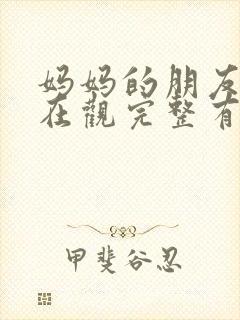 妈妈的朋友
在觀完整有
甲斐谷忍